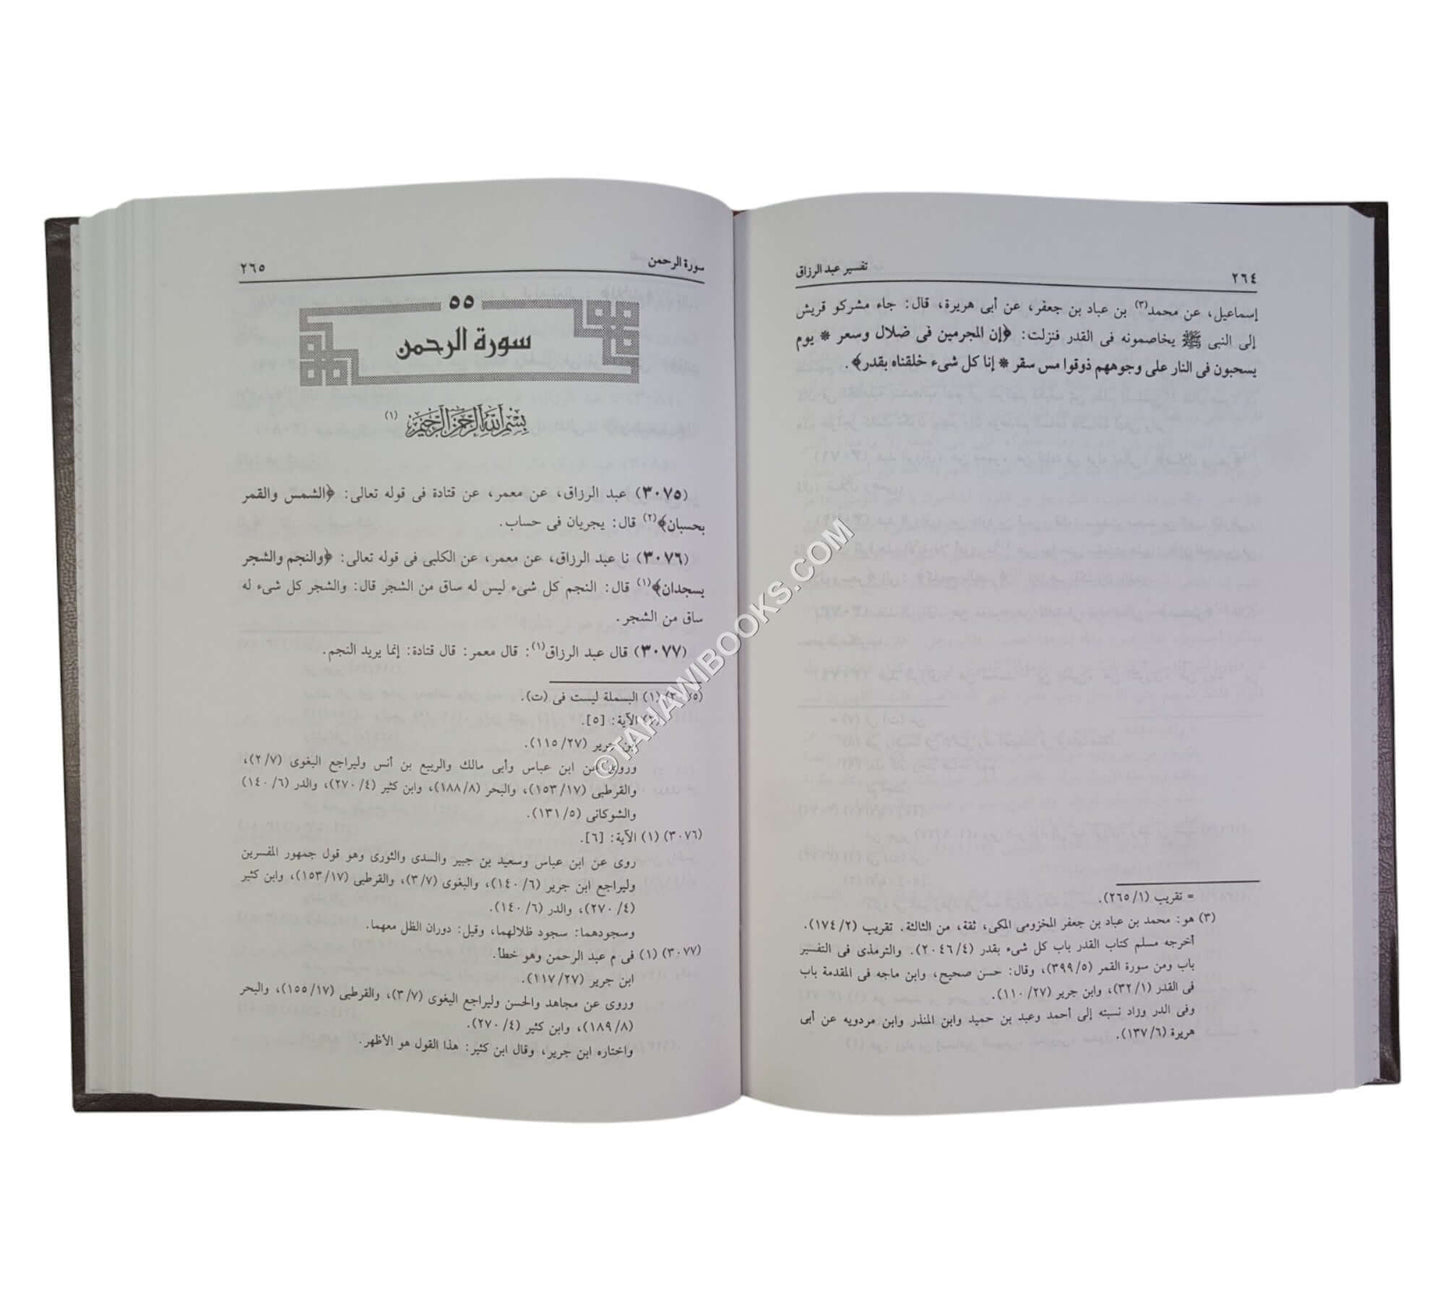 ٢٦٤
تفسير عبد الرزاق
إسماعيل، عن محمد(٣) بن عباد بن جعفر، عن أبى هريرة، قال: جاء مشركو قريش
إلى النبى ﷺ يخاصمونه فى القدر فنزلت: ﴿إن المجرمين فى ضلال وسعر * يوم
يسحبون فى النار على وجوههم ذوقوا مس سقر * إنا كل شىء خلقناه بقدر﴾.
= تقريب (١/ ٢٦٥).
(٣) هو: محمد بن عباد بن جعفر المخزومى المكى، ثقة، من الثالثة. تقريب (٢/ ١٧٤).
أخرجه مسلم كتاب القدر باب كل شىء بقدر (٤/ ٢٠٤٦). والترمذى فى التفسير
باب ومن سورة القمر (٥/ ٣٩٩)، وقال: حسن صحيح، وابن ماجه فى المقدمة باب
فى القدر (١/ ٣٢)، وابن جرير (٢٧/ ١١٠).
وفى الدر وزاد نسبته إلى أحمد وعبد بن حميد وابن المنذر وابن مردويه عن أبى
هريرة (٦/ ١٣٧).
سورة الرحمن
٢٦٥
٥٥
سورة الرحمن
بسم الله الرحمن الرحيم (١)
(٣٠٧٥) عبد الرزاق، عن معمر، عن قتادة فى قوله تعالى: ﴿الشمس والقمر
بحسبان﴾(٢) قال: يجريان فى حساب.
(٣٠٧٦) نا عبد الرزاق، عن معمر، عن الكلبى فى قوله تعالى: ﴿والنجم والشجر
يسجدان﴾(١) قال: النجم كل شىء ليس له ساق من الشجر قال: والشجر كل شىء له
ساق من الشجر.
(٣٠٧٧) قال عبد الرزاق(١): قال معمر: قال قتادة: إنما يريد النجم.
(٣٠٧٥) (١) البسملة ليست فى (ت).
(٢) الآية: [٥].
ابن جرير (٢٧/ ١١٥).
وروى عن ابن عباس وأبى مالك والربيع بن أنس وليراجع البغوى (٧/ ٢)،
والقرطبى (١٧/ ١٥٣)، والبحر (٨/ ١٨٨)، وابن كثير (٤/ ٢٧٠)، والدر (٦/ ١٤٠)
والشوكانى (٥/ ١٣١).
(٣٠٧٦) (١) الآية: [٦].
روى عن ابن عباس وسعيد بن جبير والسدى والثورى وهو قول جمهور المفسرين
وليراجع ابن جرير (٦/ ١٤٠)، والبغوى (٧/ ٣)، والقرطبى (١٧/ ١٥٣)، وابن كثير
(٤/ ٢٧٠)، والدر (٦/ ١٤٠).
وسجودهما: سجود ظلالهما، وقيل: دوران الظل معهما.
(٣٠٧٧) (١) فى م عبد الرحمن وهو خطأ.
ابن جرير (٢٧/ ١١٧).
وروى عن مجاهد والحسن وليراجع البغوى (٧/ ٣)، والقرطبى (١٧/ ١٥٥)، والبحر
(٨/ ١٨٩)، وابن كثير (٤/ ٢٧٠).
واختاره ابن جرير، وقال ابن كثير: هذا القول هو الأظهر.
©TAHAWIBOOKS.COM